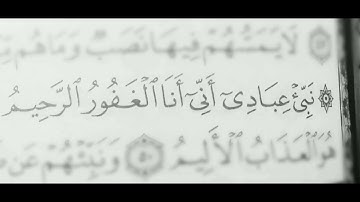 لَا يَمَسُّهُمْ فِيهَا نَصَبٌ وَمَا هُم
نَبِّئْ عِبَادِىٓ أَنِّىٓ أَنَا ٱلْغَفُورُ ٱلرَّحِيمُ
هُوَ ٱلْعَذَابُ ٱلْأَلِيمُ ۝٥٠ وَنَبِّئْهُمْ عَن